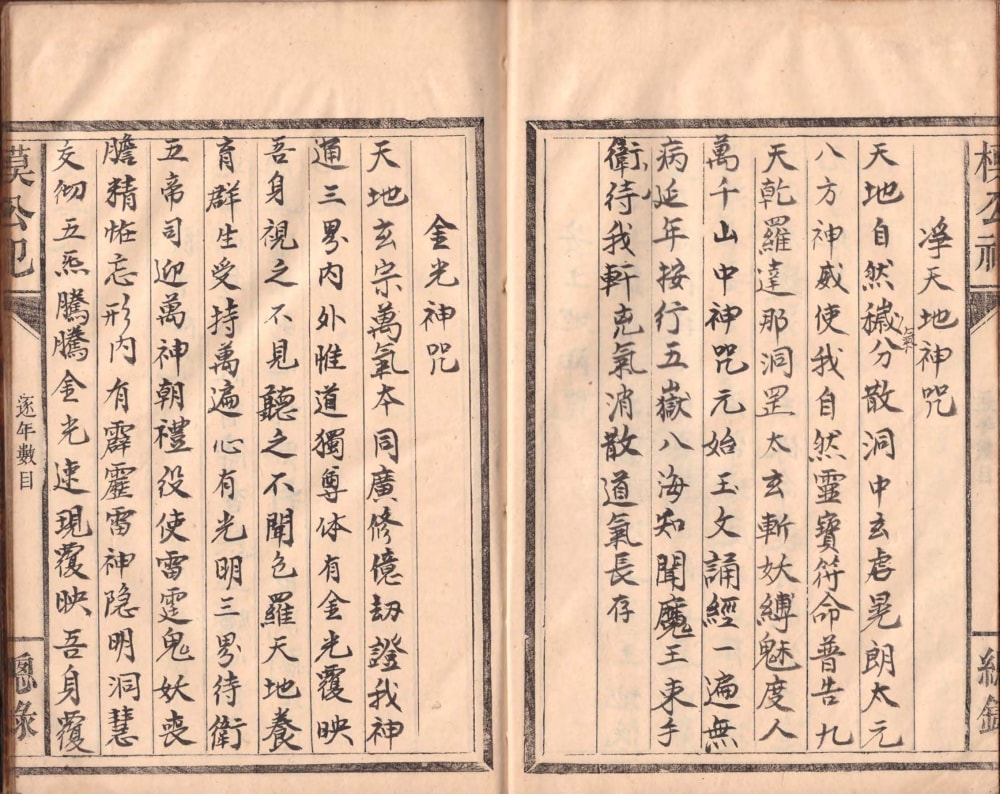 淨天地神咒
天地自然穢氣分散洞中玄虛晃朗太元
八方神威使我自然靈寶符命普告九
天乾羅達那洞罡太玄斬妖縛魅度人
萬千山中神咒元始玉文誦經一遍無
病延年按行五嶽八海知聞魔王束手
衛待我軒克氣消散道氣長存
金光神咒
天地玄宗萬氣本同廣修億劫證我神
通三界内外惟道獨尊体有金光覆映
吾身視之不見聽之不聞色羅天地養
育群生受持萬遍心有光明三界待衛
五帝司迎萬神朝禮役使雷霆鬼妖喪
膽精恠忘形内有霹靂雷神隐明洞慧
交彻五炁騰騰金光速現覆映吾身覆
逐年數目